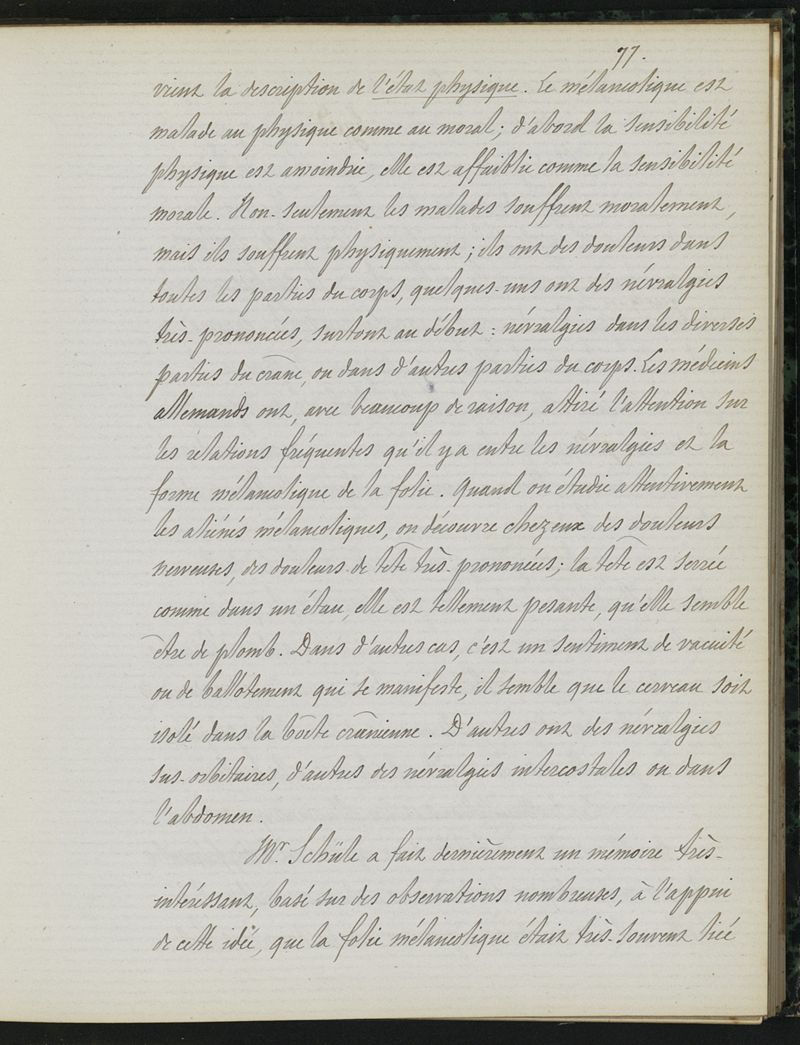 77.
vient la description de l'état physique. Le mélancolique est
malade au physique comme au moral; d'abord la sensibilité
physique est amoindrie, elle est affaiblie comme la sensibilité
morale. Non-seulement les malades souffrent moralement,
mais ils souffrent physiquement; ils ont des douleurs dans
toutes les parties du corps, quelques-uns ont des névralgies
très-prononcées, surtout au début: névralgies dans les diverses
parties du crâne, ou dans d'autres parties du corps. Les médecins
allemands ont, avec beaucoup de raison, attiré l'attention sur
les relations fréquentes qu'il y a entre les névralgies et la
forme mélancolique de la folie. Quand on étudie attentivement
les aliénés mélancoliques, on découvre chez eux des douleurs
nerveuses, des douleurs de tête très-prononcées; la tête est serrée
comme dans un étau, elle est tellement pesante, qu'elle semble
être de plomb. Dans d'autres cas, c'est un sentiment de vacuité
ou de ballotement qui se manifeste, il semble que le cerveau soit
isolé dans la boîte crânienne. D'autres ont des névralgies
sus-orbitaires, d'autres des névralgies intercostales ou dans
l'abdomen.
Mr. Schüle a fait dernièrement un mémoire très-
intéressant, basé sur des observations nombreuses, à l'appui
de cette idée, que la folie mélancolique était très-souvent liée